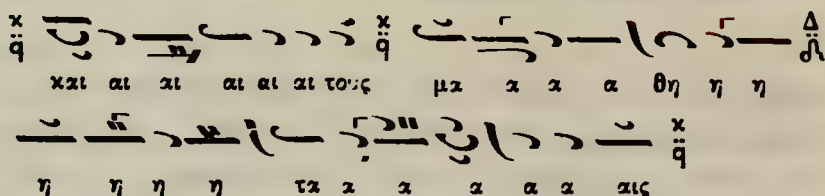 κ κ Δ
και αι αι αι αι αι τους μα α α α θη η η
κ
η η η η τα α α α α α αις